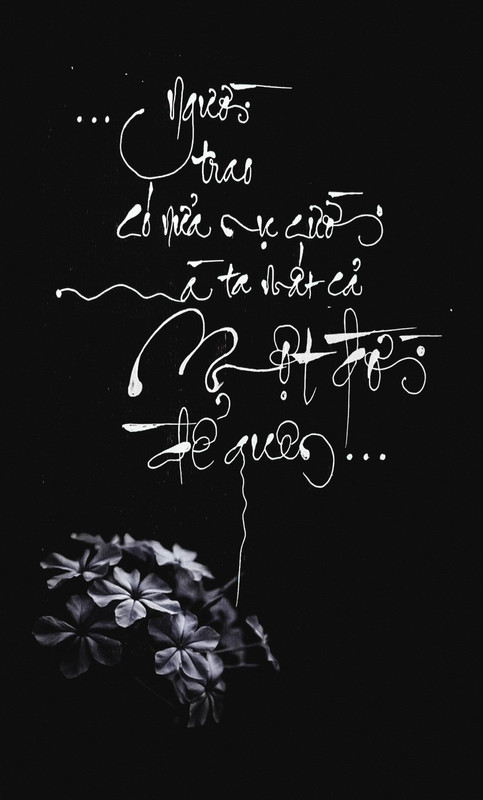 ... Người
trao
có nửa nụ cười
mà ta mất cả
Một đời
để quên...